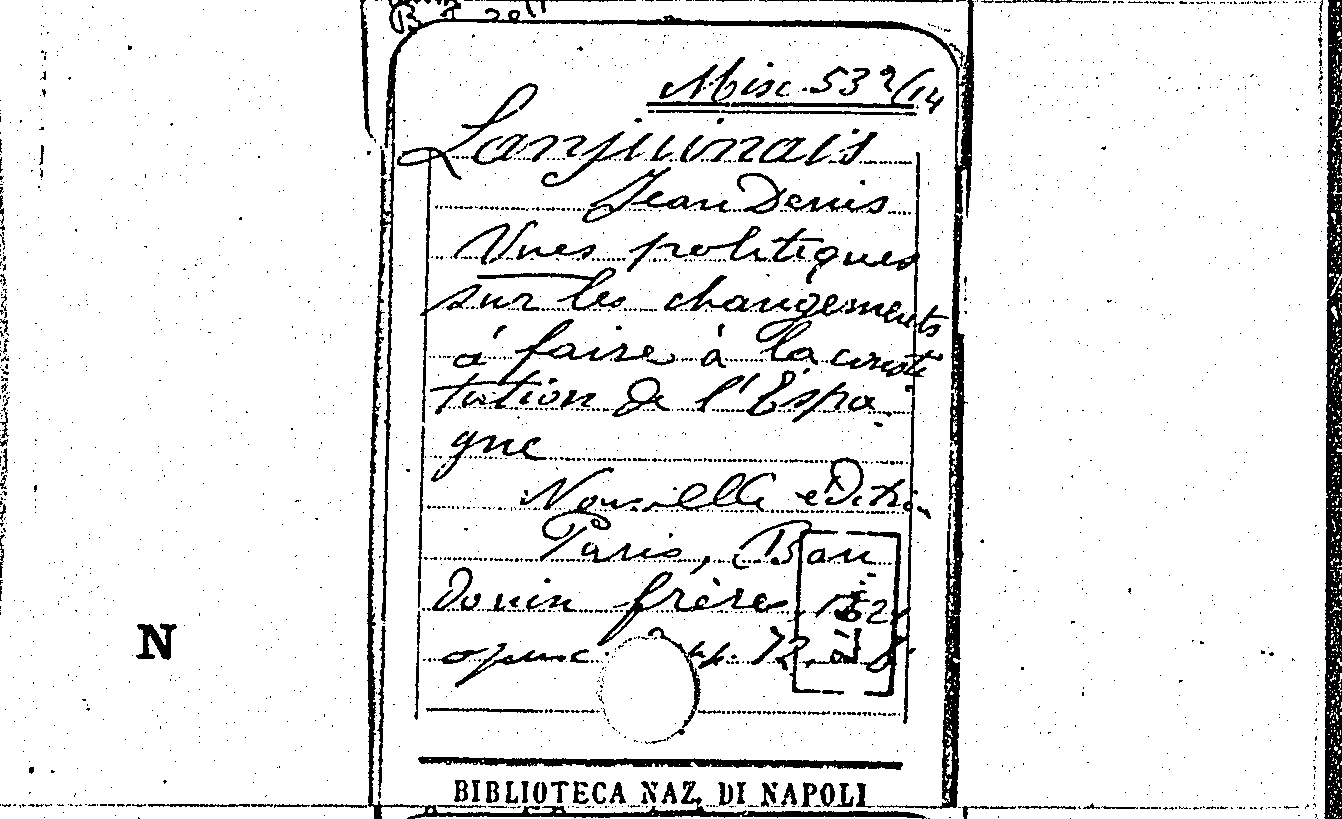 Misc. 532/14
Lanjuinais
Jean Denis
Vues politiques
sur les changements
à faire à la consti
tution de l'Espa
gne
Nouvelle edition
Paris, Bau
douin frères, 182
opusc. pp. 72. in 8°
N
BIBLIOTECA NAZ. DI NAPOLI